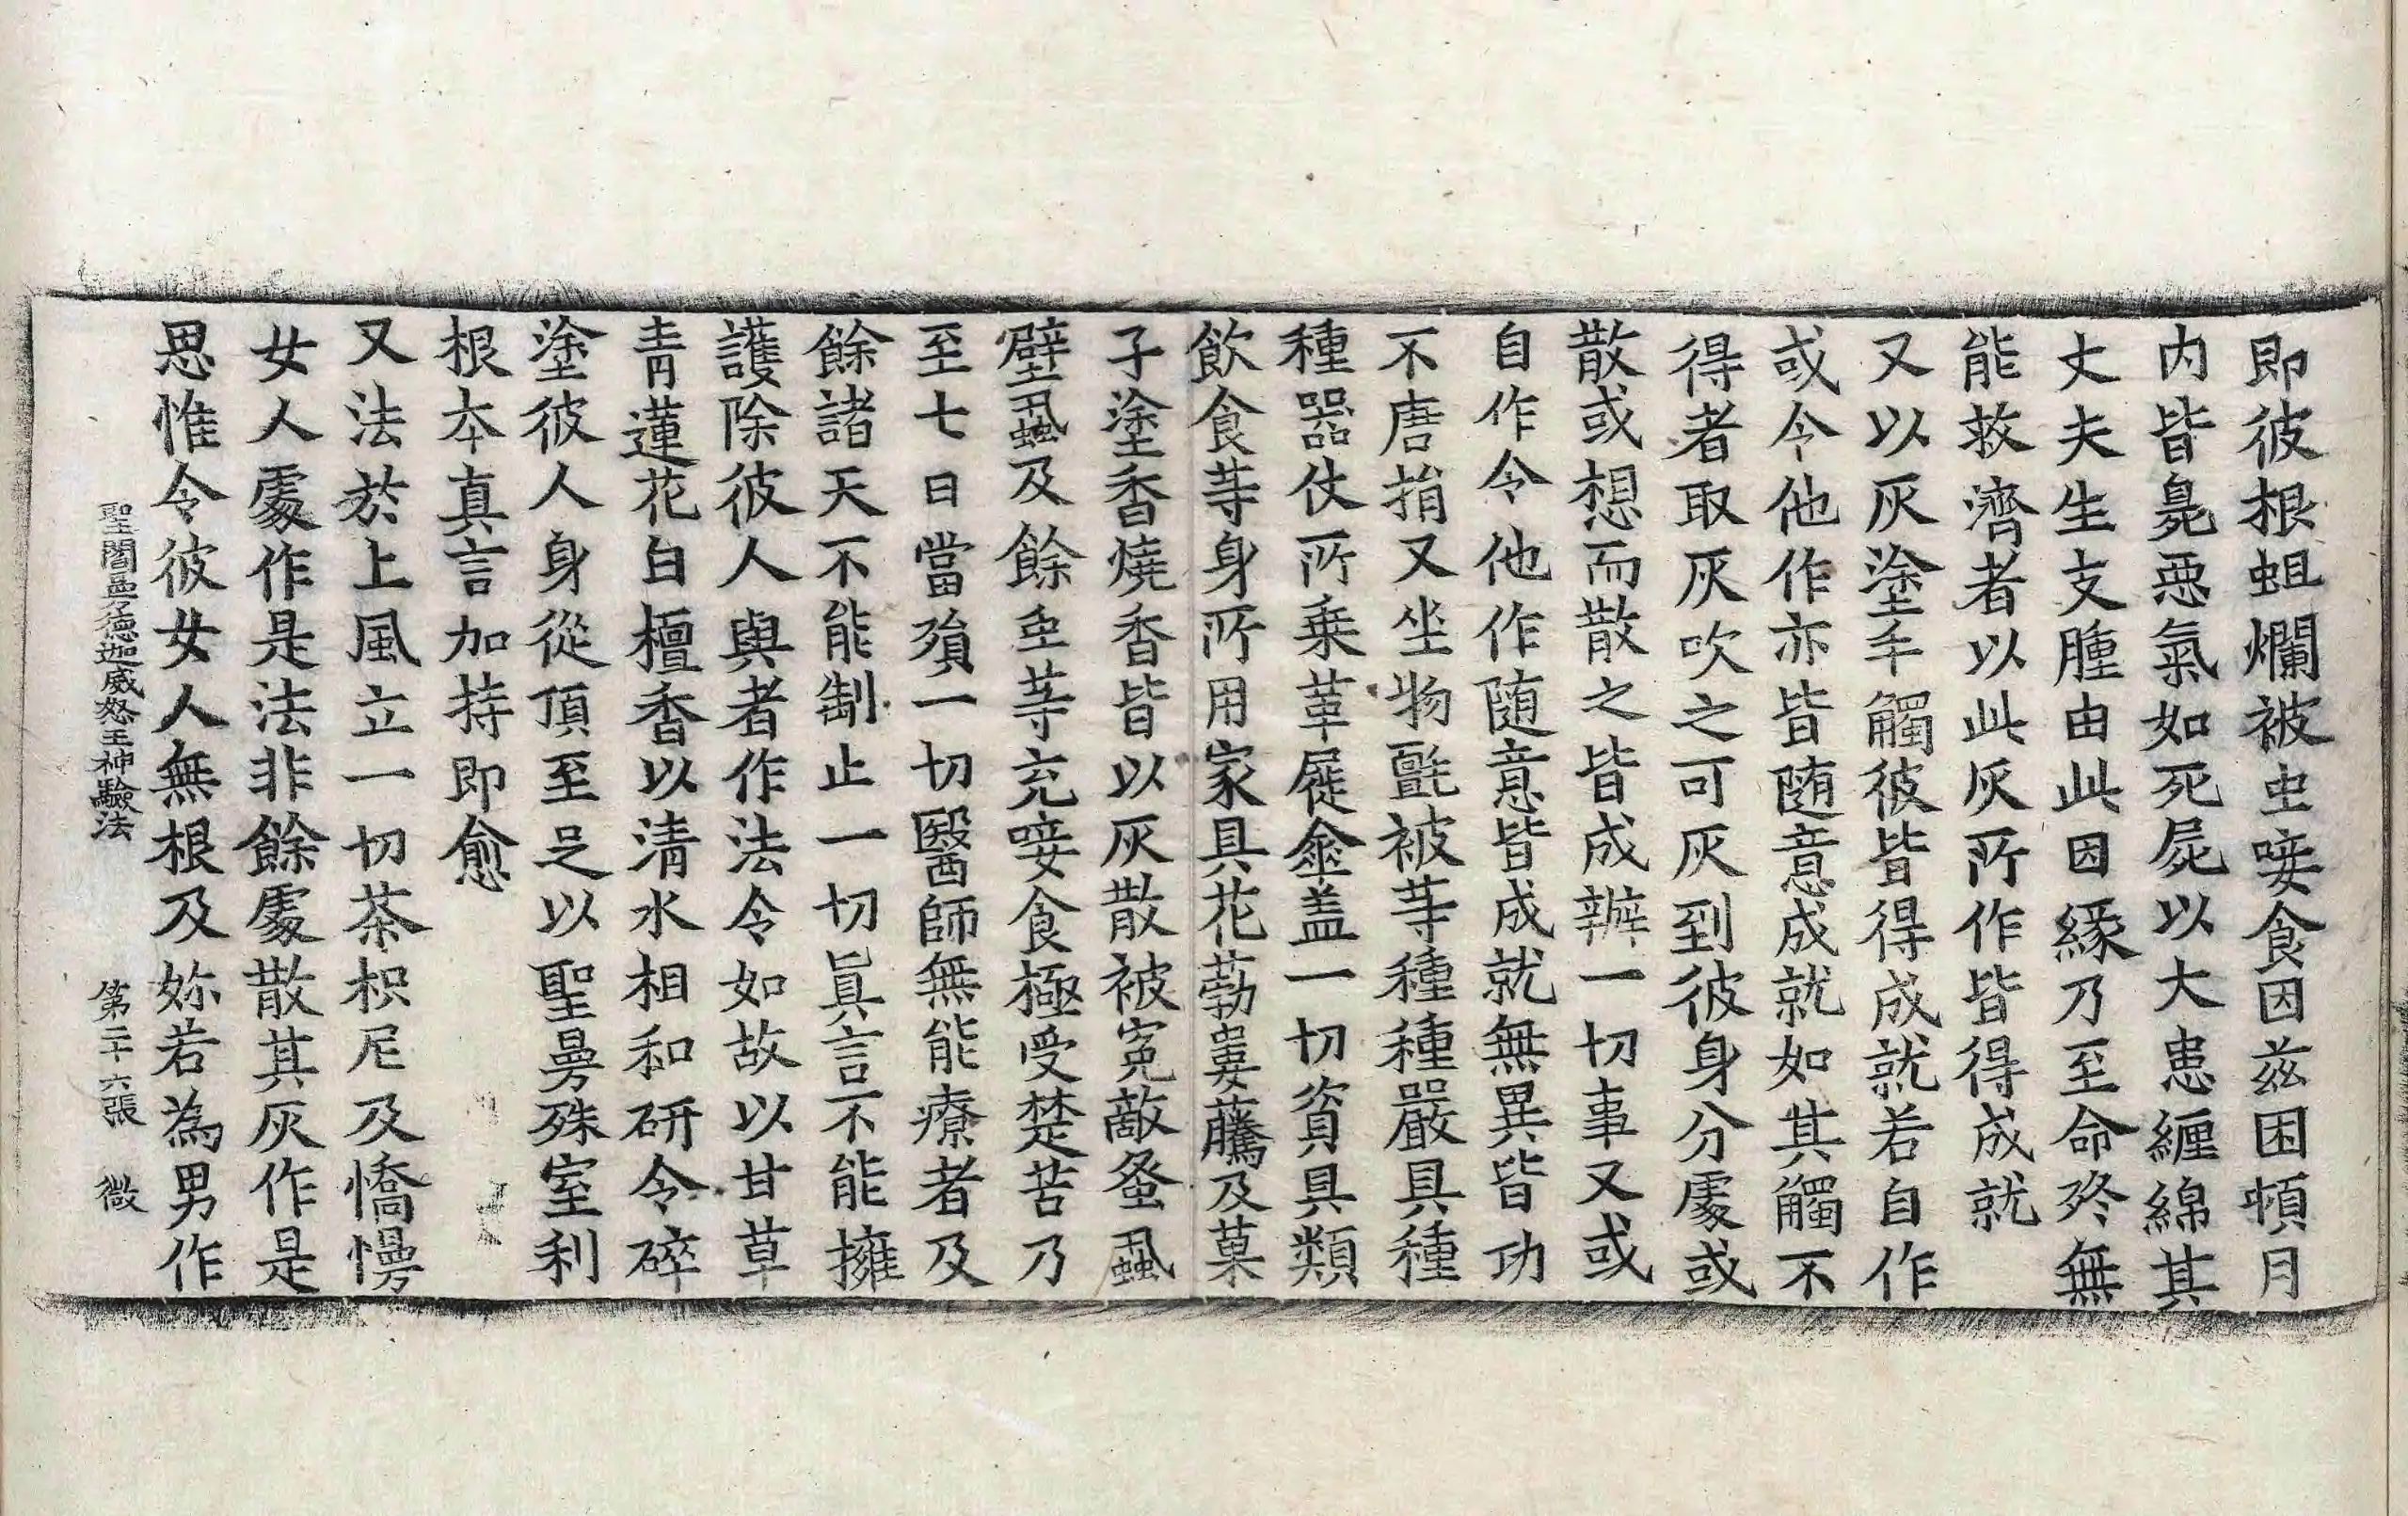 即彼根蛆爛被虫唼食因兹困頓月
内皆臰惡氣如死屍以大患纏綿其
丈夫生支腫由此因緣乃至命終無
能救濟者以此灰所作皆得成就
又以灰塗手觸彼皆得成就若自作
或令他作亦皆随意成就如其觸不
得者取灰吹之可灰到彼身分處或
散或想而散之皆成辦一切事又或
自作令他作随意皆成就無異皆功
不唐捐又坐物氈被䓁種種嚴具種
種器仗所乗革屣傘盖一切資具類
飲食䓁身所用家具花蔓藤及菓
子塗香燒香皆以灰散被寃敵蚤蝨
壁蝨及餘虫䓁充唼食極受楚苦乃
至七日當殞一切醫師無能療者及
餘諸天不能制止一切真言不能擁
護除彼人與者作法令如故以甘草
青蓮花白檀香以清水相和研令碎
塗彼人身從頂至足以聖曼殊室利
根本真言加持即愈
又法於上風立一切茶枳尼及憍慢
女人處作是法非餘處散其灰作是
思惟令彼女人無根及妳若為男作
聖閻曼德迦威怒王神驗法 第二十六張 微